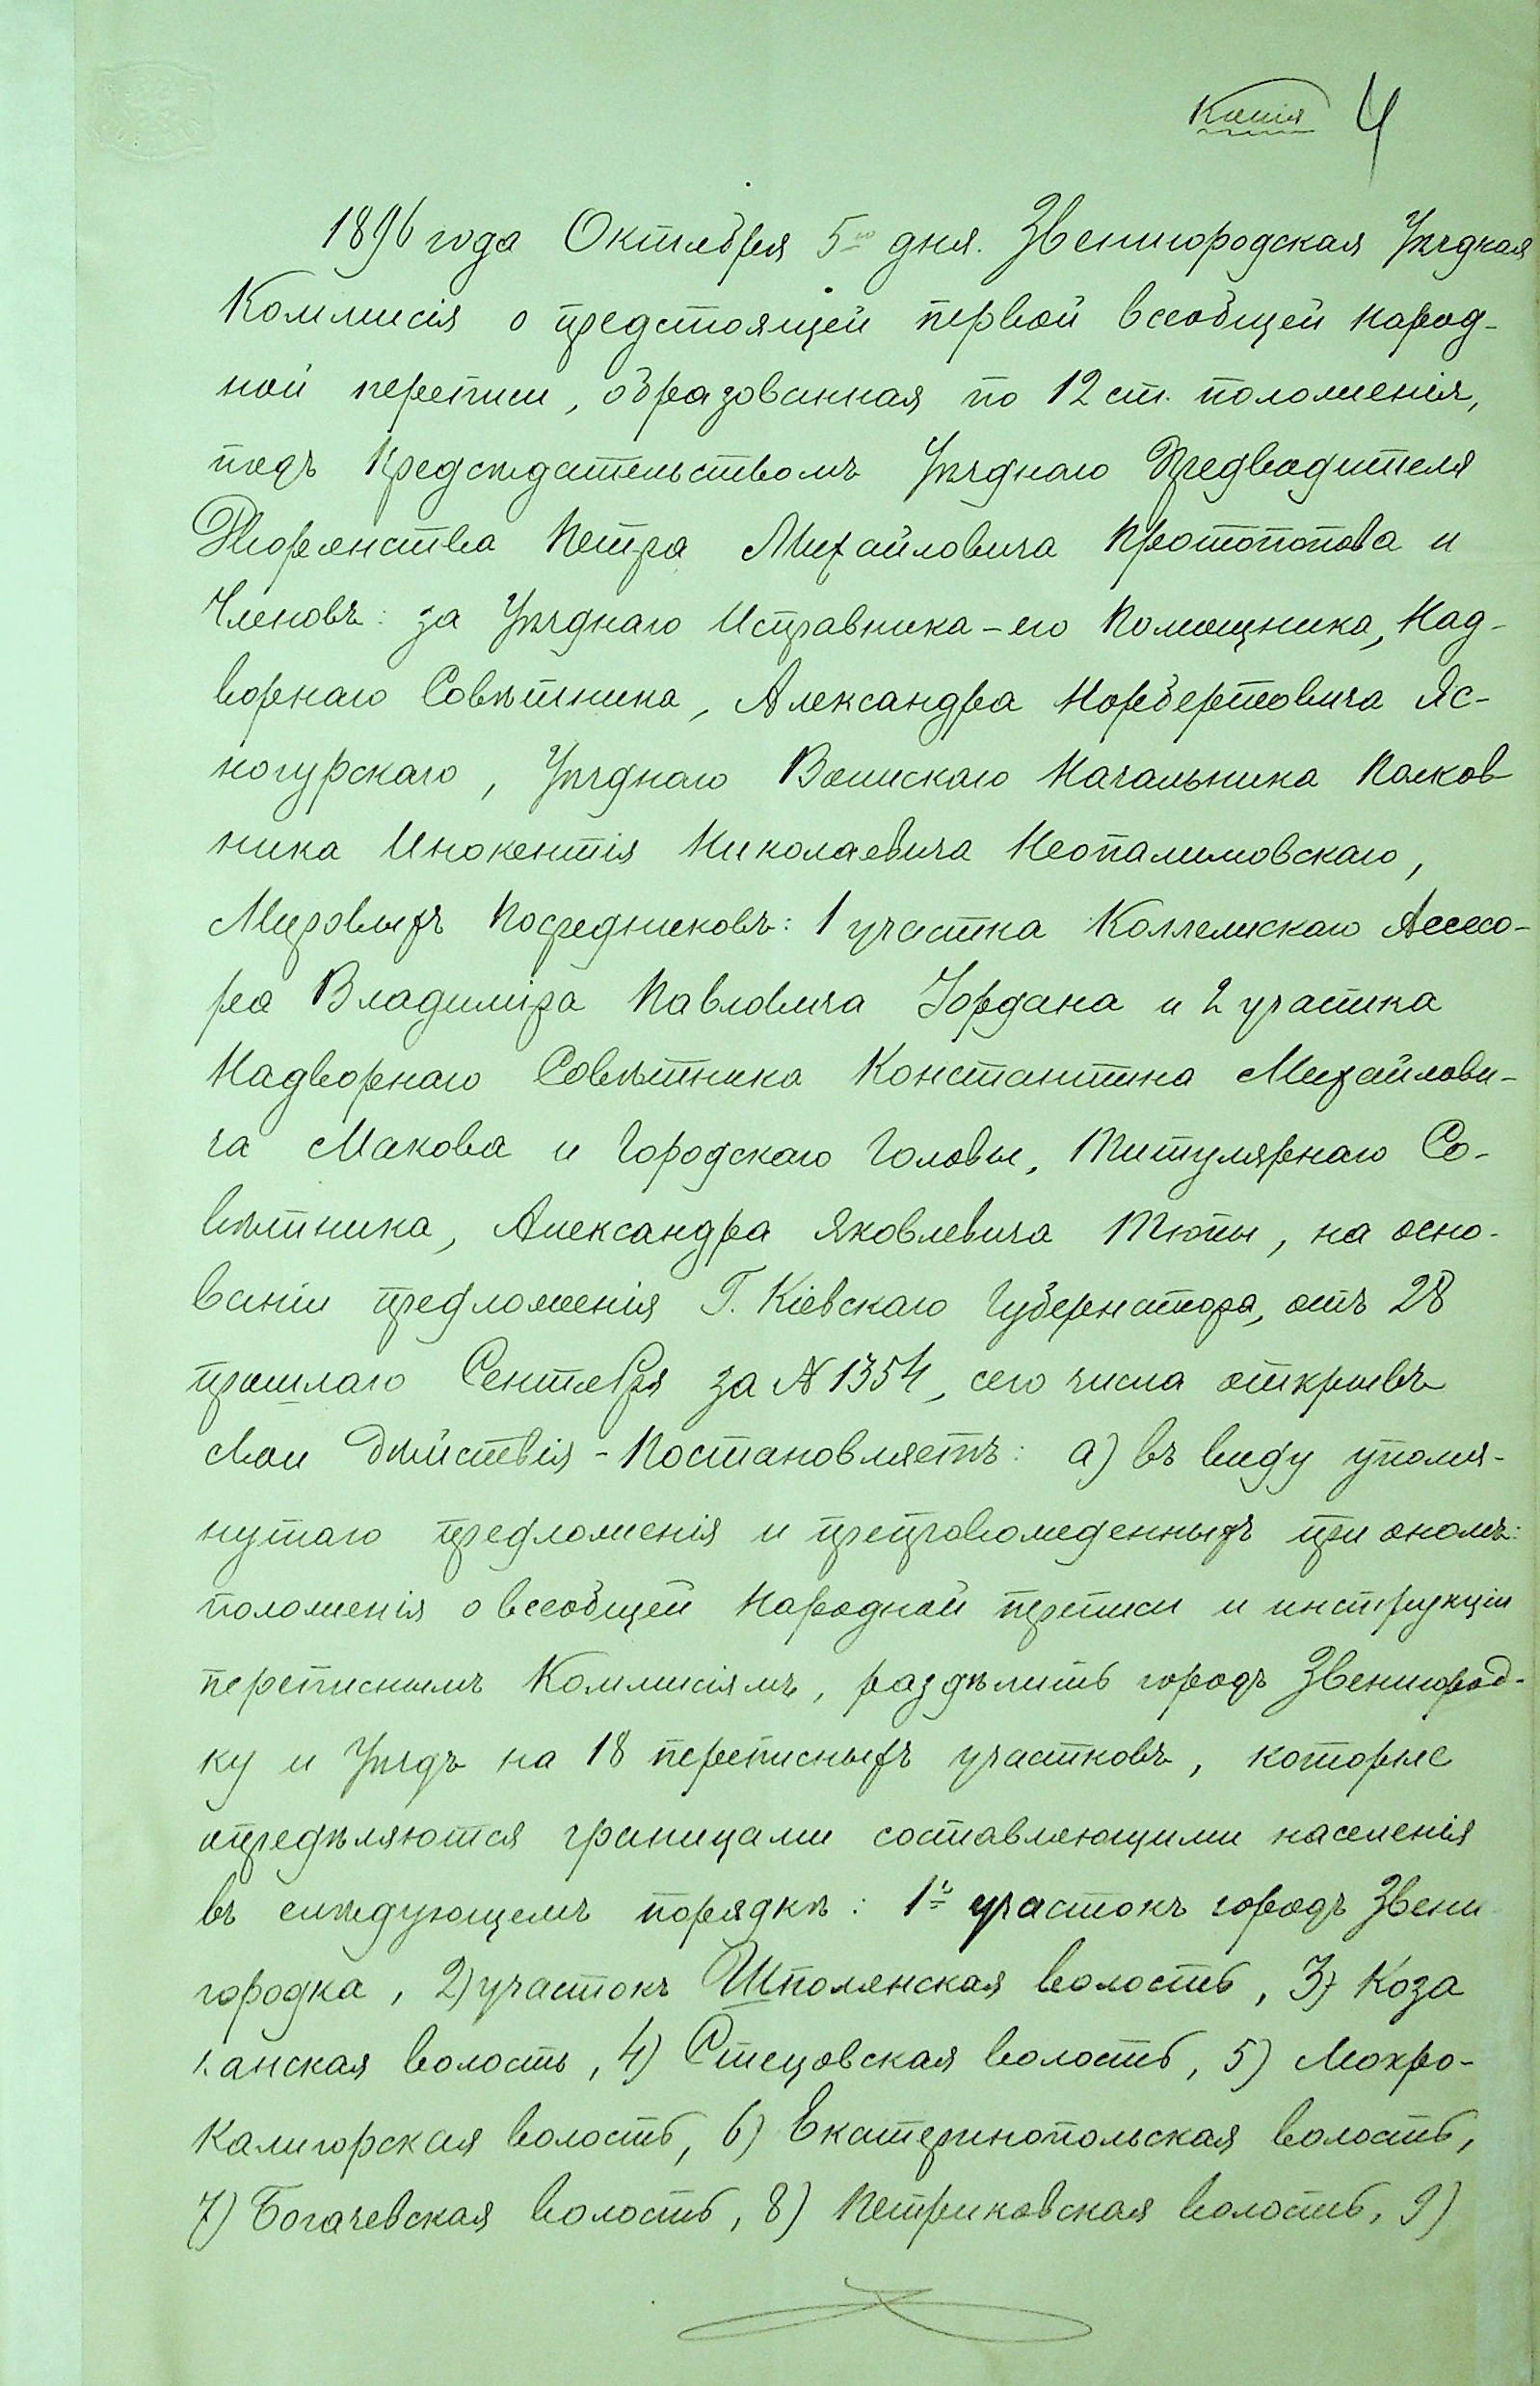 Копія 4
1896 года Октября 5го дня. Звенигородская Уѣздная
Коммисія о предстоящей первой всеобщей народ-
ной переписи, образованная по 12 ст. положенія,
подъ Предсѣдательствомъ Уѣзднаго Предводителя
Дворянства Петра Михайловича Протопопова и
Членовъ: за Уѣзднаго Исправника - его Помощника, Над-
ворнаго Совѣтника, Александра Норбертовича Яс-
ногурскаго, Уѣзднаго Воинскаго Начальника Полков
ника Инокентія Николаевича Неопалимовскаго,
Мировыхъ Посредниковъ: 1 участка Коллежскаго Ассесо-
ра Владиміра Павловича Іордана и 2 участка
Надворнаго Совѣтника Константина Михайлови-
ча Макова и Городскаго Головы, Титулярнаго Со-
вѣтника, Александра Яковлевича Тюпы, на осно-
ваніи предложенія Г. Кіевскаго Губернатора, отъ 28
прошлаго Сентября за № 1354, сего числа открывъ
свои дѣйствія - Постановляетъ: а) въ виду упомя-
нутаго предложенія и препровожденныхъ при ономъ:
положенія о всеобщей Народной переписи и инструкціи
переписнымъ Коммисіямъ, раздѣлить городъ Звенигород-
ку и Уѣздъ на 18 переписныхъ участковъ, которые
опредѣляются границами составляющими населенія
въ слѣдующемъ порядкѣ: 1й участокъ городъ Звени
городка, 2) участокъ Шполянская волость, 3) Коза
цанская волость, 4) Стецовская волость, 5) Мокро-
Калигорская волость, 6) Екатеринопольская волость,
7) Богачевская волость, 8) Петриковская волость, 9)